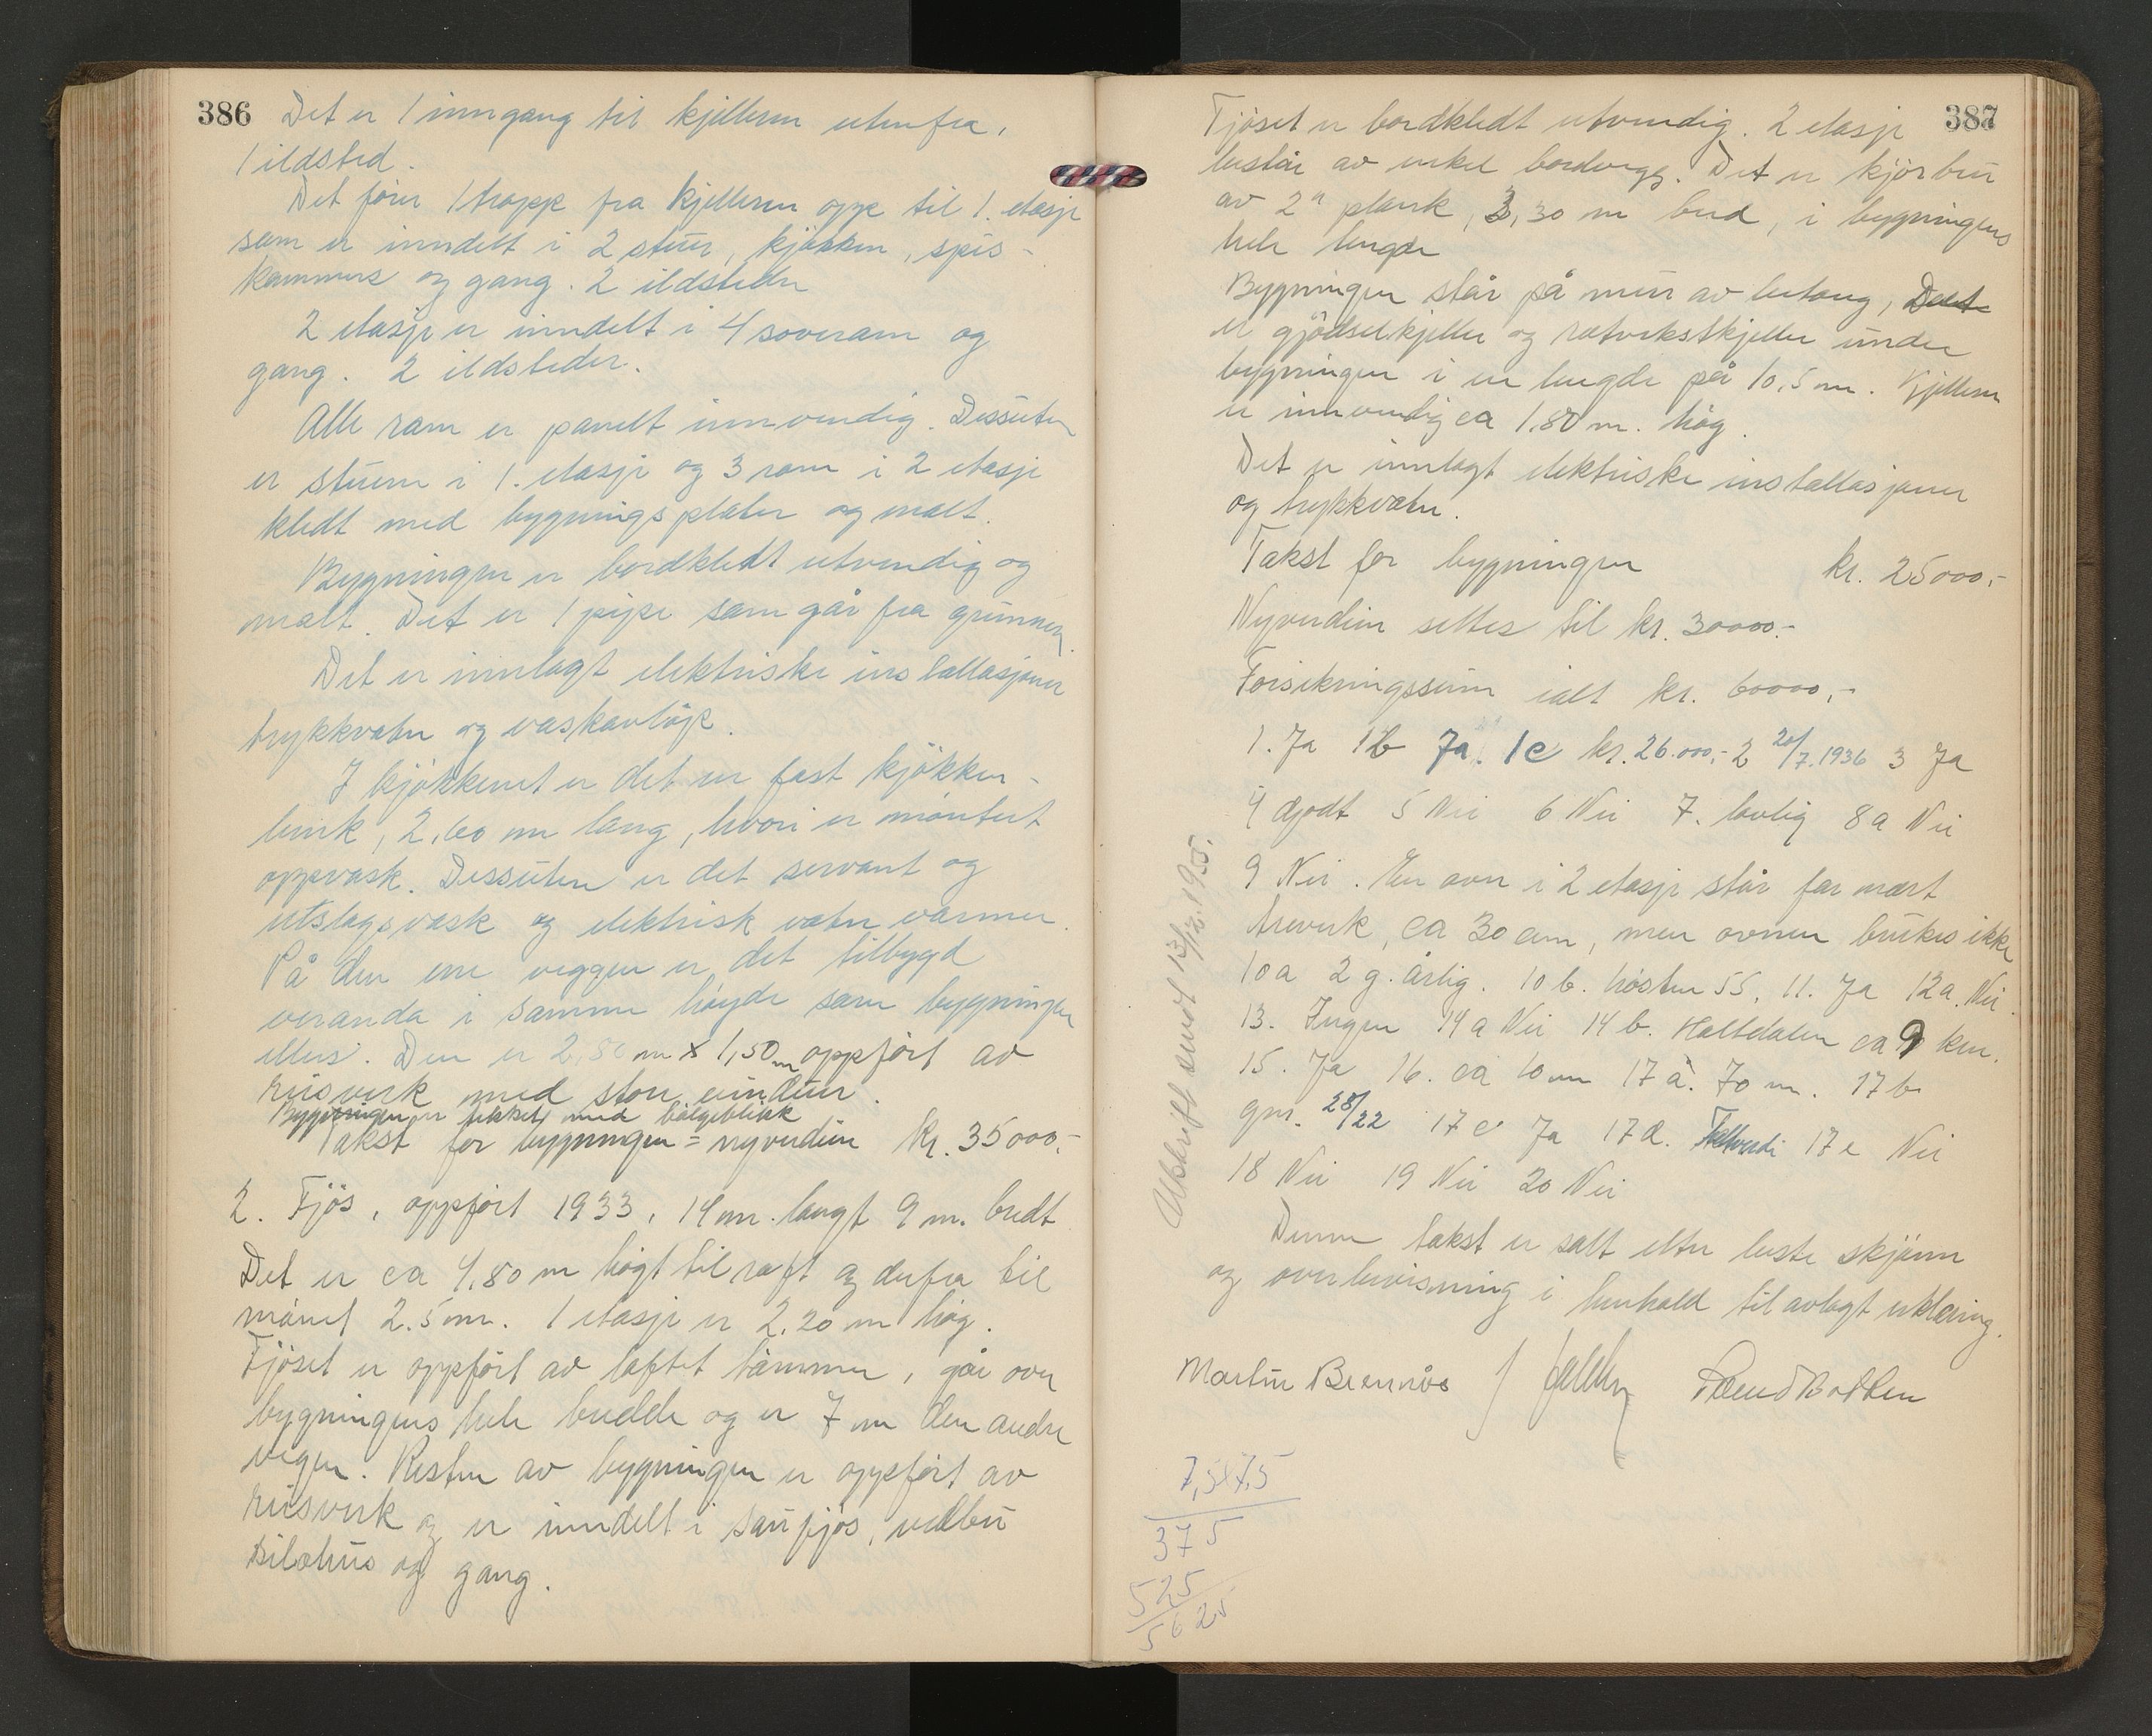 386
Det er 1 inngang til kjelleren utenfra,
1 ildsted.
Det fører 1 trapp fra kjelleren opp til 1. etasje
som er inndelt i 2 stuer, kjøkken, spis-
kammers og gang. 2 ildsteder
2 etasje er inndelt i 4 soverom og
gang. 2 ildsteder.
Alle rom er panelt innvendig. Dessuten
er stuen i 1. etasje og 3 rom i 2 etasje
kledt med bygningsplater og malt.
Bygningen er bordkledt utvendig og
malt. Det er 1 pipe som går fra grunnen.
Det er innlagt elektriske installasjoner
trykkvatn og vaskavløp.
I kjøkkenet er det en fast kjøkken-
benk, 2,60 m lang, hvori er montert
oppvask. Dessuten er det servant og
utslagsvask og elektrisk vatn varmer.
På den ene veggen er det tilbygd
veranda i samme høyde som bygningen
ellers. Den er 2,50 m x 1,50 m oppført av
reisverk med store vinduer.
Bygningen er tekket med bølgeblikk
Takst for bygningen = nyverdien kr. 35000.-
2. Fjøs, oppført 1933, 14 m. langt 9 m. bredt
Det er ca 4,80 m høgt til raft og derfra til
mønet 2.5 m. 1 etasje er 2.20 m høg.
Fjøset er oppført av laftet tømmer, går over
bygningens hele bredde og er 7 m den andre
vegen. Resten av bygningen er oppført av
reisverk og er inndelt i saufjøs, vedbu
bilehus og gang.
387
Fjøset er bordkledt utvendig. 2 etasje
består av enkel bordvegg. Det er kjørbru
av 2" plank, 3,30 m bred, i bygningens
hele lengde
Bygningen står på mur av betong, Det
er gjødselkjeller og rotvekstkjeller under
bygningen i en lengde på 10,5 m. Kjelleren
er innvendig ca 1,80 m. høg.
Det er innlagt elektriske installasjoner
og trykkvatn.
Takst for bygningen kr. 25000,-
Nyverdien settes til kr. 30000.-
Forsikringssum ialt kr. 60000,-
1. Ja 1b Ja. 1c kr. 26.000,- 2 20/7.1936 3 Ja
4 godt 5 Nei 6 Nei 7. lovlig 8a Nei
9 Nei. En ovn i 2 etasje står for nært
treverk, ca 30 cm, men ovnen brukes ikke
10a 2 g. årlig. 10 b. høsten 55. 11. Ja 12a. Nei.
13. Ingen 14a Nei 14 b. Haltdalen ca 9 km.
15. Ja 16. ca 10 m 17 a. 70 m. 17 b
gnr. 28/22 17 c Ja 17 d. 17 e Nei
18 Nei 19 Nei 20 Nei
Denne takst er satt etter beste skjønn
og overbevisning i henhold til avlagt erklæring.
Martin Brennås
Avskrift sendt 13/12.1955.
7,5x7,5
375
525
5625